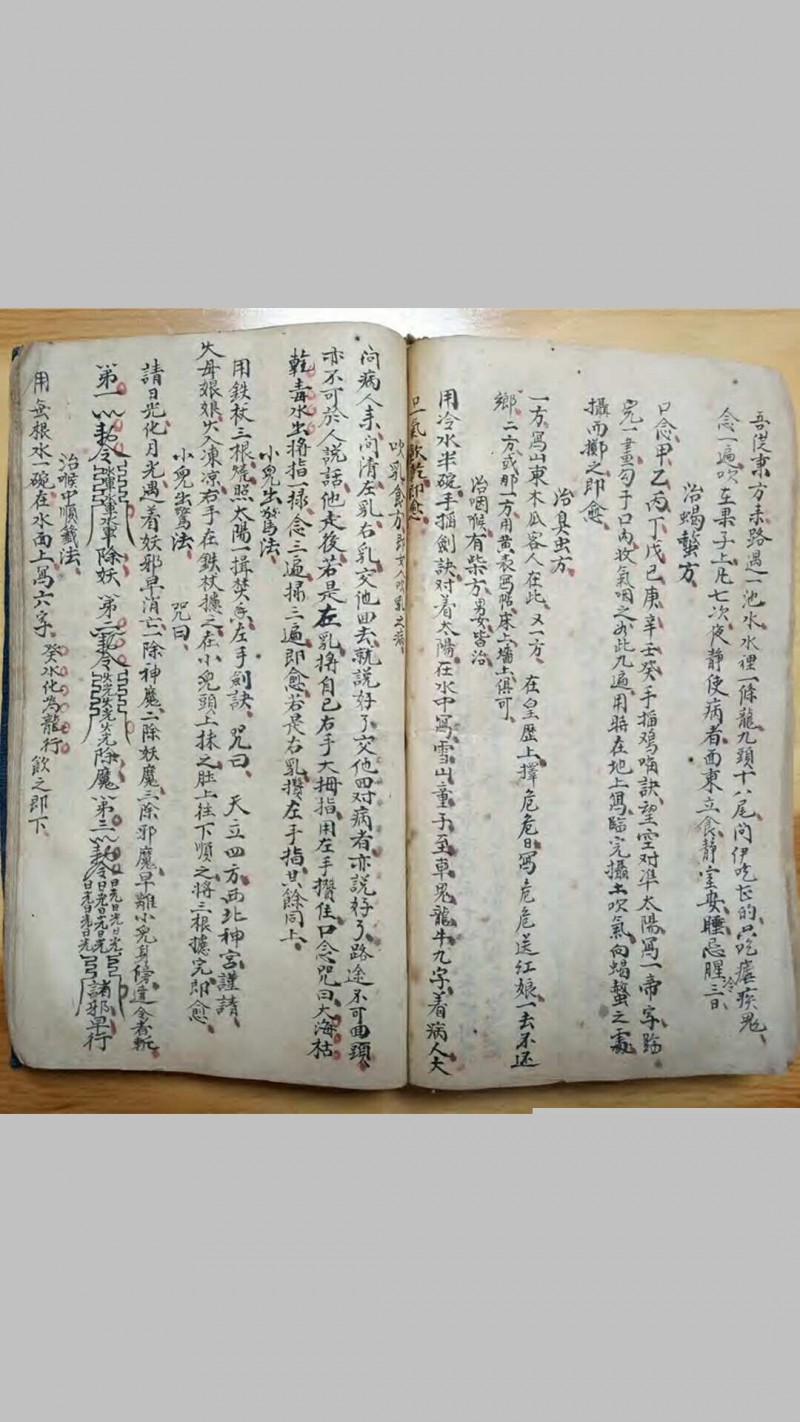 吾從東方來路遇一池水水裡一條龍九頭十八尾问伊吃甚的只吃瘧疾鬼
念一遍吹在果子上凡七次夜靜使病者面東立食靜室安睡忌腥冷三日
治蝎螫方
口念甲乙丙丁戊己庚辛壬癸手掐鸡嘴訣望空对準太陽寫一帝字臨
完一畫勾于口內收氣咽之如此九遍用時在地上寫臨完攝土吹氣向蝎螫之處
攝而擲之即愈
治臭虫方
一方寫山東木瓜客人在此又一方在皇歷上擇危危日寫危危送红娘一去不还
鄉二方或那一方用黄表寫貼床上墙上俱可
治咽喉有柴方男女皆治
用冷水半碗手掐劍訣对着太陽在水中寫雪山童子至車鬼龍牛九字着病人大
口一氣飲乾即愈
吹乳食方即女人吹乳之病
问病人来问清左乳右乳交他回去就説好了交他回对病者亦説好了路途不可回頭
亦不可於人説話他走後若是在乳將自己右手大拇指用左手攢住口念咒曰大海枯
乾毒水出將指一掃念三遍掃三遍即愈若是右乳攢左手指其餘同上
小兒出驚法
用鉄杖三根燒照太陽一揖焚香左手劍訣咒曰天立四方西北神宫謹請
火母娘娘火入凍凉右手在鉄杖攄之在小兒頭上抹之肚上往下順之將三根攄完即愈
小兒出驚法 咒曰
請日光化月光遇着妖邪早消亡一除神魔二除妖魔三除邪魔早離小兒身傍違令者斬
第一 勅令 除妖 第二 勅令 除魔 第三 勅令 諸邪早行
治喉中順籤法
用無根水一碗在水面上寫六字 癸水化為龍行飲之即下